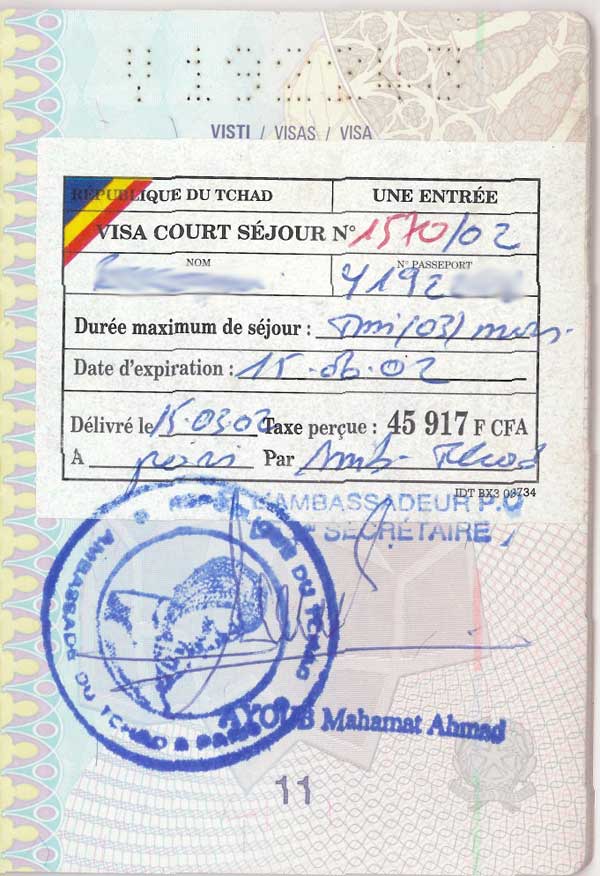 119
VISTI / VISAS / VISA
RÉPUBLIQUE DU TCHAD UNE ENTRÉE
VISA COURT SÉJOUR N° 1570/02
NOM N° PASSEPORT
Y192
Durée maximum de séjour : (03) mois
Date d'expiration : 15.06.02
Délivré le 15.03.02 Taxe perçue : 45 917 F CFA
A paris Par Amb. Tchad
IDT BX3 03734
L'AMBASSADEUR P.O
SECRÉTAIRE
AMBASSADE DU TCHAD A PARIS
DU TCHAD
AYOUB Mahamat Ahmad
11